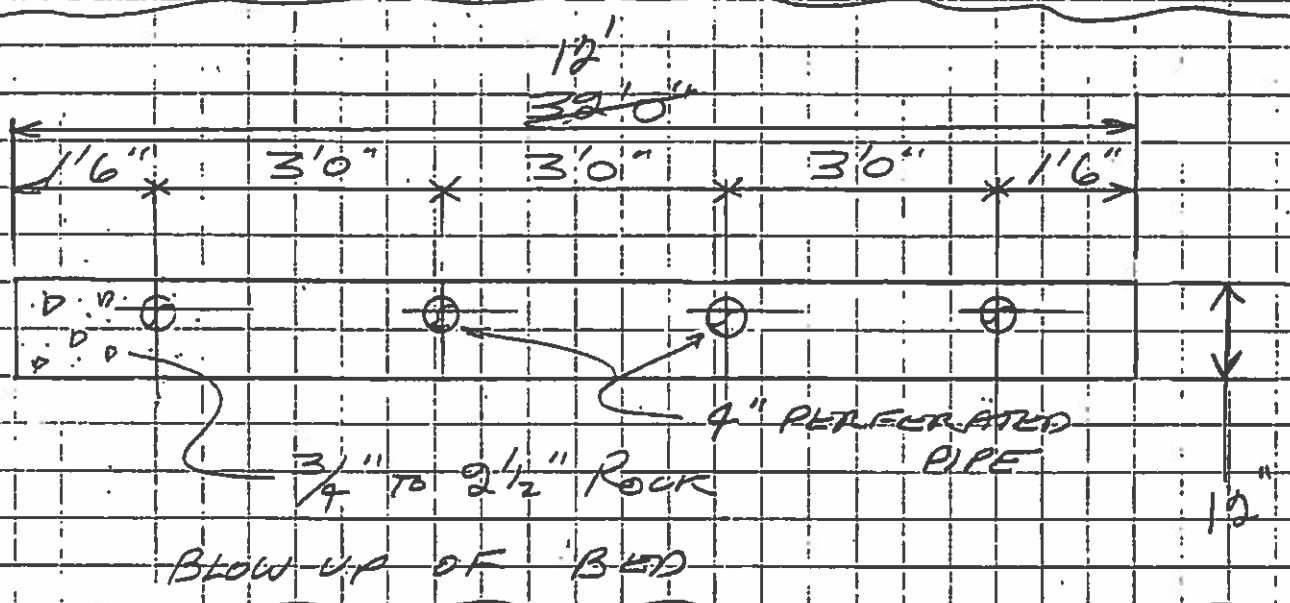 12'
32'0"
1'6" 3'0" 3'0" 3'0" 1'6"
4" PERFERATED
PIPE
3/4" TO 2 1/2" ROCK
12"
BLOW UP OF BED